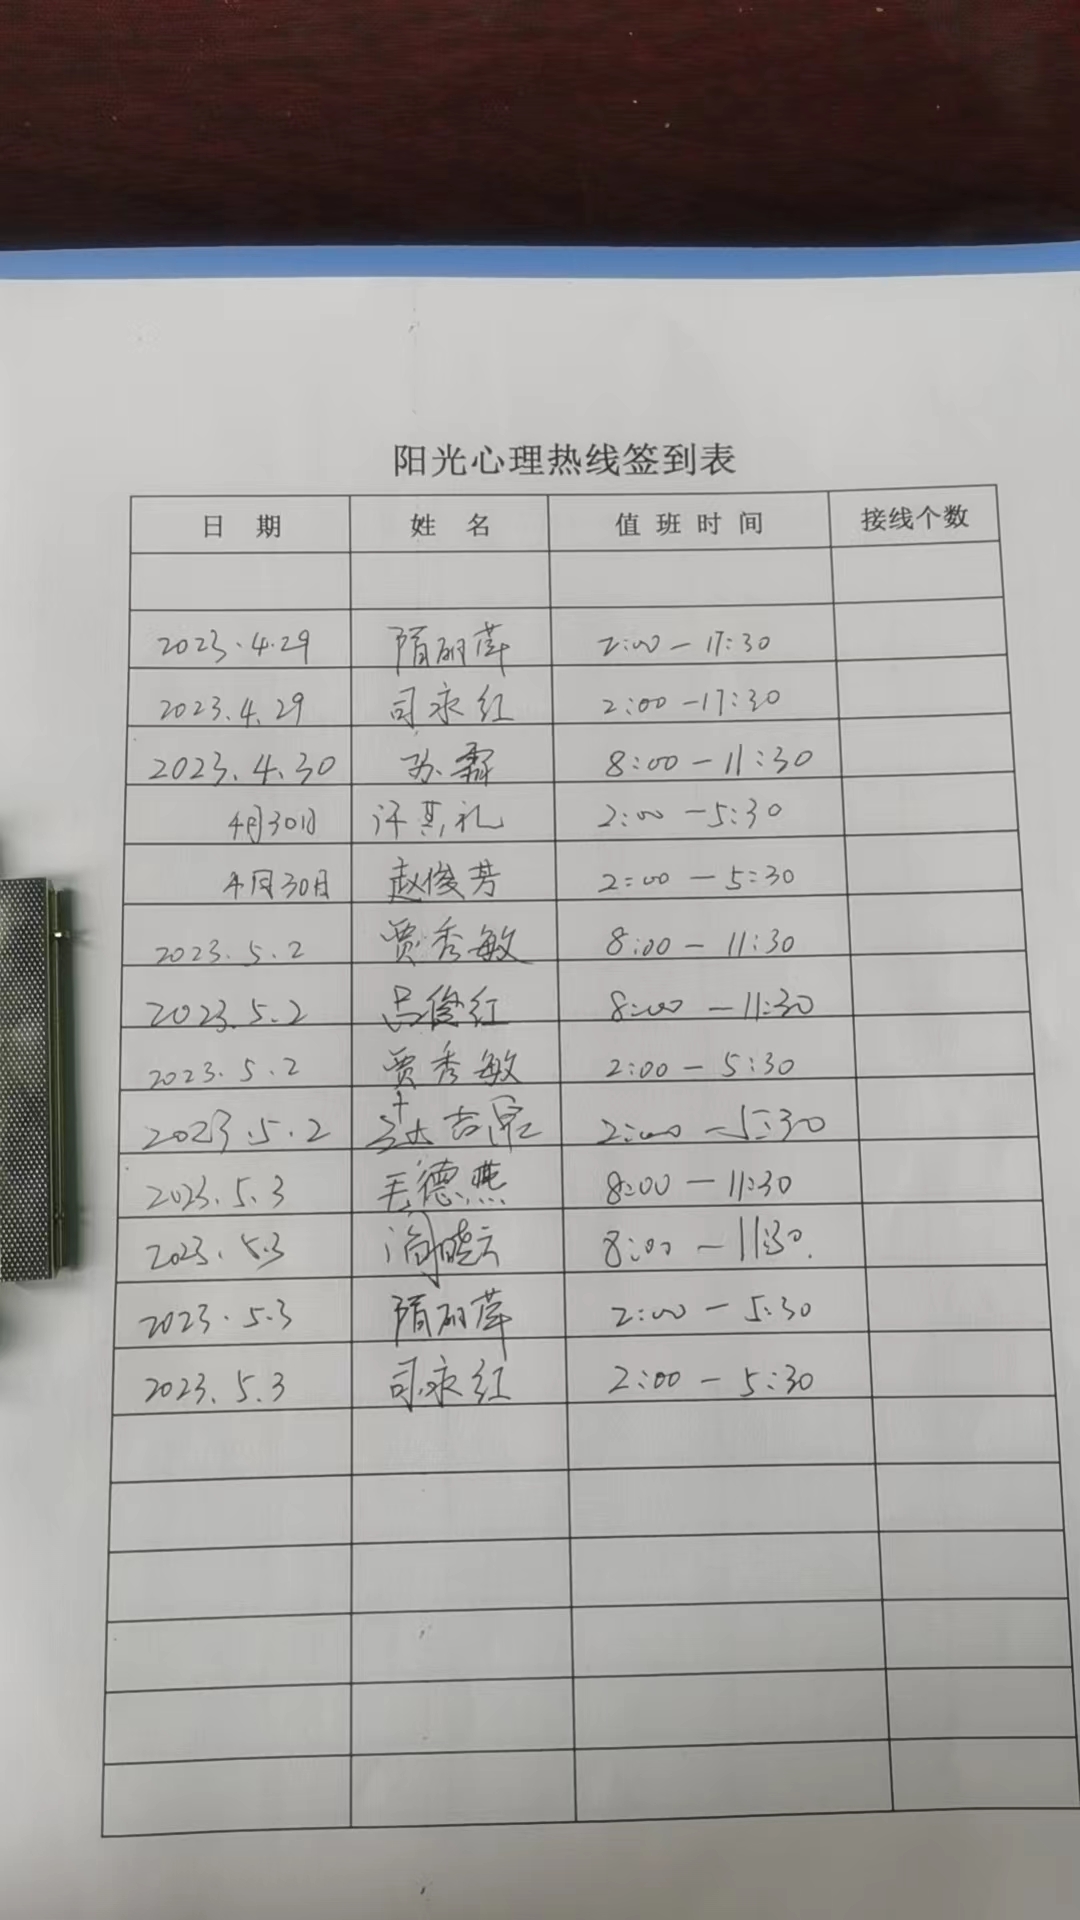 阳光心理热线签到表
日 期 姓 名 值 班 时 间 接线个数
2023.4.29 隋丽萍 2:00-17:30
2023.4.29 司永红 2:00-17:30
2023.4.30 苏霖 8:00-11:30
4月30日 许其礼 2:00-5:30
4月30日 赵俊芳 2:00-5:30
2023.5.2 贾秀敏 8:00-11:30
2023.5.2 吕俊红 8:00-11:30
2023.5.2 贾秀敏 2:00-5:30
2023.5.2 2:00-5:30
2023.5.3 毛德燕 8:00-11:30
2023.5.3 晓云 8:00-11:30.
2023.5.3 隋丽萍 2:00-5:30
2023.5.3 司永红 2:00-5:30